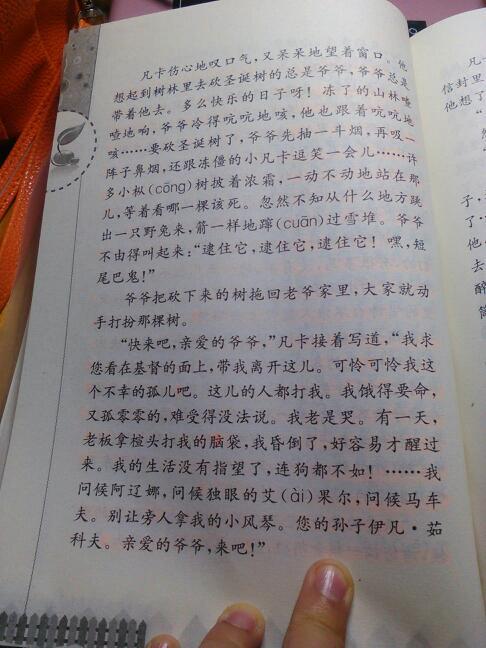 凡卡伤心地叹口气，又呆呆地望着窗口。他
想起到树林里去砍圣诞树的总是爷爷，爷爷总是
带着他去。多么快乐的日子呀！冻了的山林喳
喳地响，爷爷冷得吭吭地咳，他也跟着吭吭地
咳……要砍圣诞树了，爷爷先抽一斗烟，再吸一
阵子鼻烟，还跟冻僵的小凡卡逗笑一会儿……许
多小枞(cōng)树披着浓霜，一动不动地站在那
儿，等着看哪一棵该死。忽然不知从什么地方跳
出一只野兔来，箭一样地蹿(cuān)过雪堆。爷爷
不由得叫起来：“逮住它，逮住它，逮住它！嘿，短
尾巴鬼！”
爷爷把砍下来的树拖回老爷家里，大家就动
手打扮那棵树。
“快来吧，亲爱的爷爷，”凡卡接着写道，“我求
您看在基督的面上，带我离开这儿。可怜可怜我这
个不幸的孤儿吧。这儿的人都打我。我饿得要命，
又孤零零的，难受得没法说。我老是哭。有一天，
老板拿楦头打我的脑袋，我昏倒了，好容易才醒过
来。我的生活没有指望了，连狗都不如！……我
问候阿辽娜，问候独眼的艾(ài)果尔，问候马车
夫。别让旁人拿我的小风琴。您的孙子伊凡·茹
科夫。亲爱的爷爷，来吧！”
凡
信封里
他想了
子，
了
他
去
醒